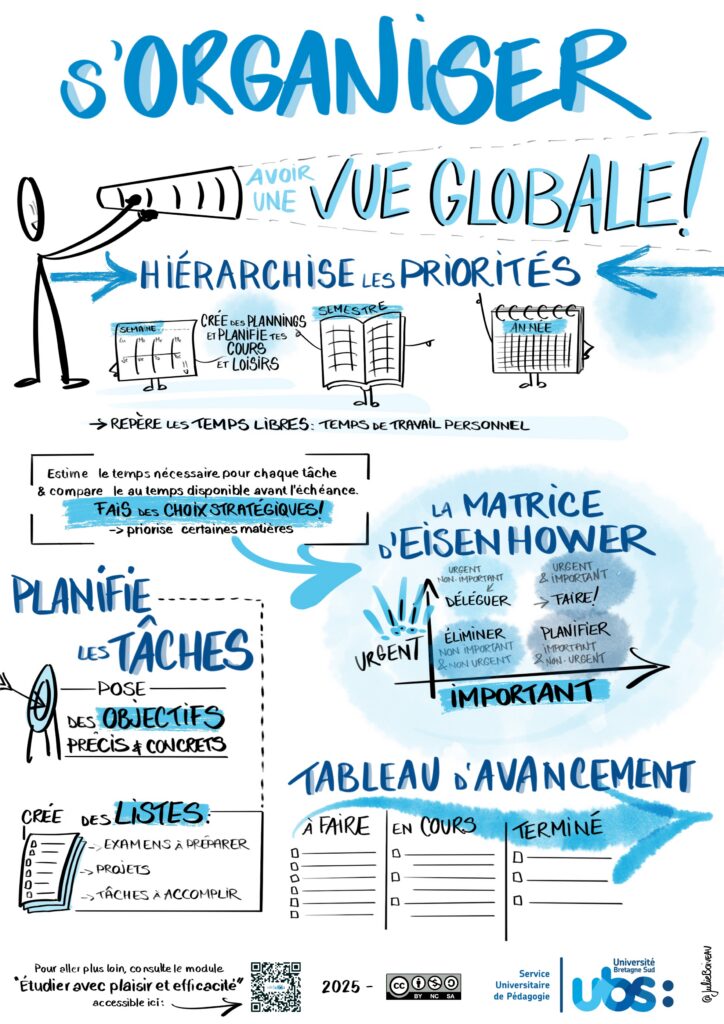 S'ORGANISER
AVOIR
UNE
VUE GLOBALE!
HIÉRARCHISE LES PRIORITÉS
SEMAINE
Lu Ma Me
CRÉE DES PLANNINGS
ET PLANIFIE TES
COURS
ET LOISIRS
SEMESTRE
ANNÉE
→ REPÈRE LES TEMPS LIBRES: TEMPS DE TRAVAIL PERSONNEL
Estime le temps nécessaire pour chaque tâche
& compare le au temps disponible avant l'échéance.
FAIS DES CHOIX STRATÉGIQUES!
-> priorise certaines matières
LA MATRICE
D'EISENHOWER
URGENT
NON-IMPORTANT
DÉLÉGUER
URGENT
& IMPORTANT
→ FAIRE!
ÉLIMINER
NON IMPORTANT
& NON URGENT
PLANIFIER
IMPORTANT
& NON-URGENT
URGENT
IMPORTANT
PLANIFIE
LES TÂCHES
POSE
DES OBJECTIFS
PRÉCIS & CONCRETS
CRÉE DES LISTES:
→ EXAMENS À PRÉPARER
→ PROJETS
→ TÂCHES À ACCOMPLIR
TABLEAU D'AVANCEMENT
À FAIRE
EN COURS
TERMINÉ
Pour aller plus loin, consulte le module
"Étudier avec plaisir et efficacité"
accessible ici:
2025 -
cc
BY NC SA
Service
Universitaire
de Pédagogie
Université
Bretagne Sud
ubs:
@JulieBoiveau